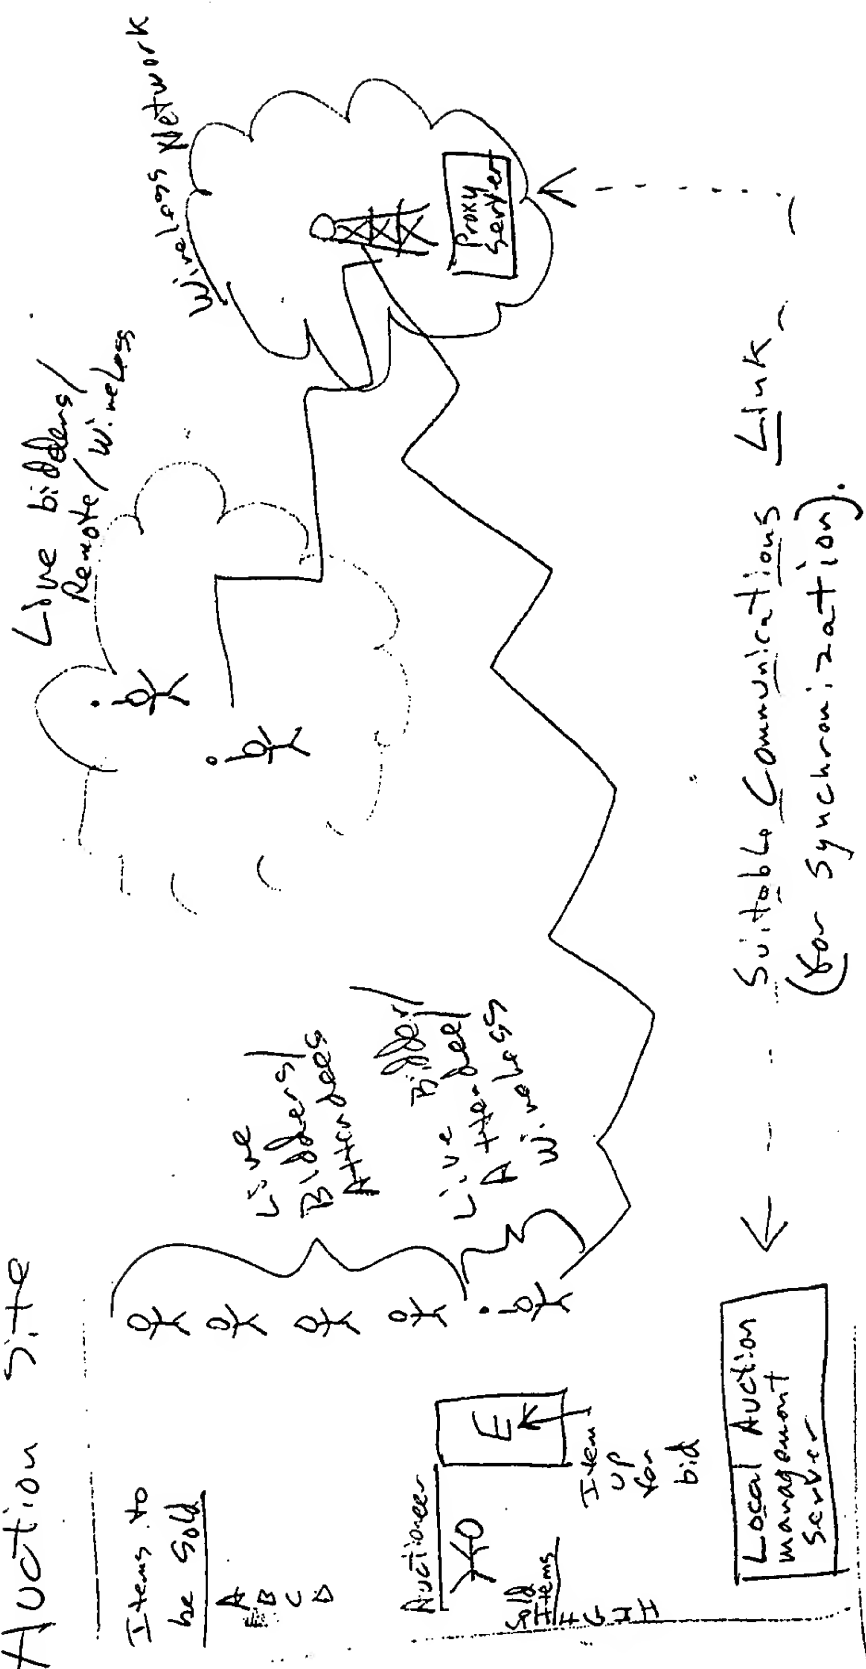 Auction Site
Items to
be Sold
A
B
C
D
Auctioneer
Sold
Items
F
G
H
I
E
Item
up
for
bid
Local Auction
management
Server
Live
Bidders/
Attendees
Live Bidder/
Attendee/
Wireless
Live bidders/
Remote/Wireless
Wireless Network
Proxy
Server
Suitable Communications Link
(for synchronization).